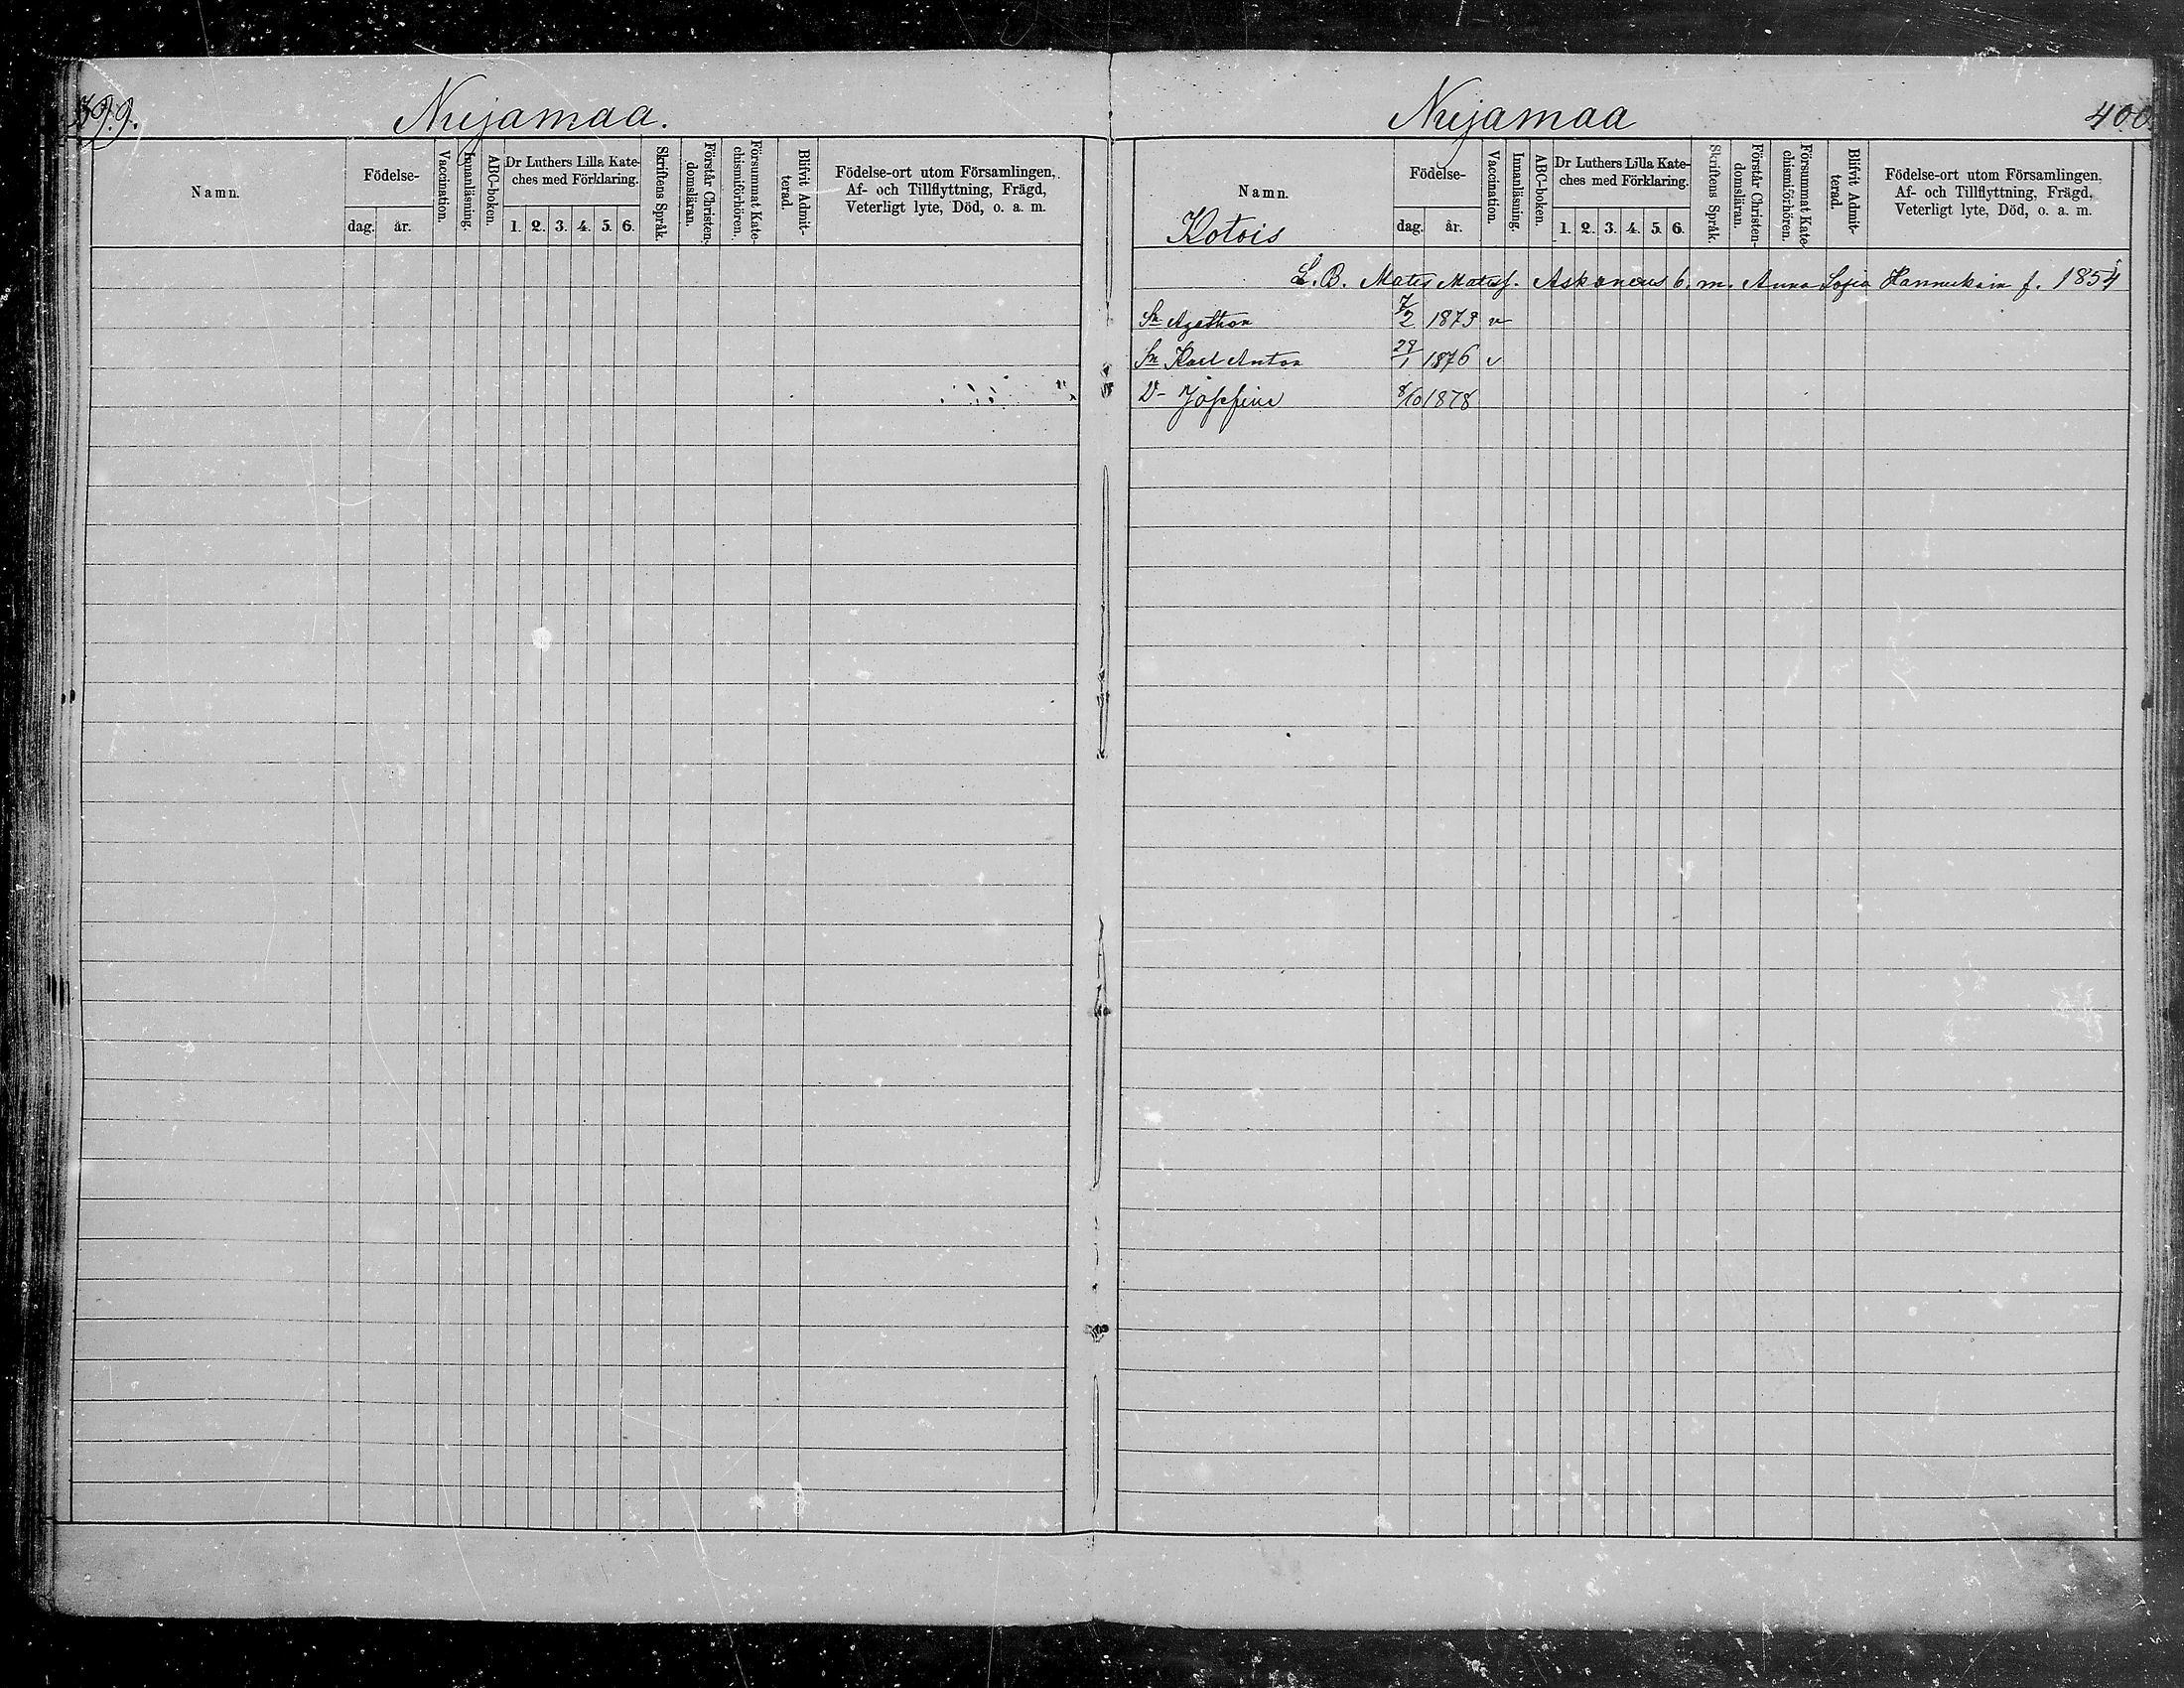 399. Nuijamaa.
Namn.
Födelse-
dag. år.
Vaccination.
Innanläsning.
ABC-boken.
Dr Luthers Lilla Kate-
ches med Förklaring.
1. 2. 3. 4. 5. 6.
Skriftens Språk.
Förstår Christen-
domsläran.
Försummat Kate-
chismiförhören.
Blifvit Admit-
terad.
Födelse-ort utom Församlingen,
Af- och Tillflyttning, Frägd,
Veterligt lyte, Död, o. a. m.
Nuijamaa 400.
Namn.
Kotois
Födelse-
dag. år.
Vaccination.
Innanläsning.
ABC-boken.
Dr Luthers Lilla Kate-
ches med Förklaring.
1. 2. 3. 4. 5. 6.
Skriftens Språk.
Förstår Christen-
domsläran.
Försummat Kate-
chismiförhören.
Blifvit Admit-
terad.
Födelse-ort utom Församlingen,
Af- och Tillflyttning, Frägd,
Veterligt lyte, Död, o. a. m.
L. B. Mats Matsf. Askanens b. m. Anna Sofia Hannukain f. 1854
Sn Agathon 7/2 1873 v
Sn Karl Anton 29/1 1876 v
D- Josefina 8/10 1878